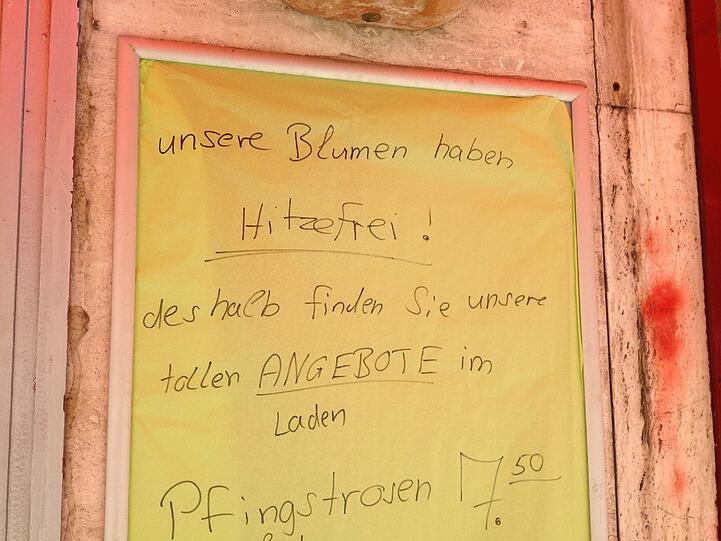 unsere Blumen haben
Hitzefrei!
deshalb finden Sie unsere
tollen ANGEBOTE im
Laden
Pfingstrosen 7.50